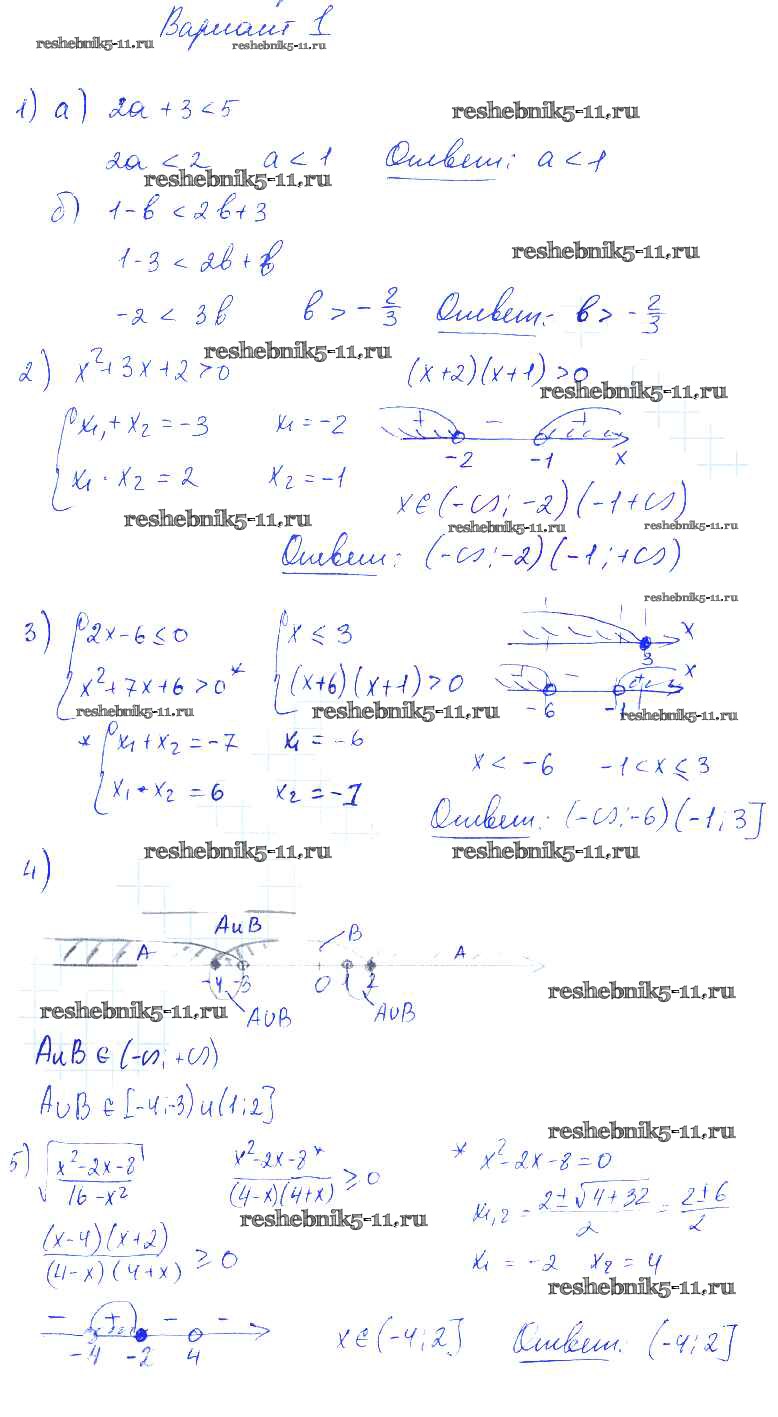 Вариант 1
reshebnik5-11.ru reshebnik5-11.ru
1) а) 2a + 3 < 5
reshebnik5-11.ru
2a < 2 a < 1 Ответ: a < 1
reshebnik5-11.ru
б) 1 - b < 2b + 3
1 - 3 < 2b + b
reshebnik5-11.ru
-2 < 3b b > -2/3 Ответ: b > -2/3
reshebnik5-11.ru
2) x² + 3x + 2 > 0 (x+2)(x+1) > 0
reshebnik5-11.ru
{ x₁ + x₂ = -3 x₁ = -2 + - +
x₁ · x₂ = 2 x₂ = -1 -2 -1 x
x ∈ (-∞; -2) (-1 +∞)
reshebnik5-11.ru reshebnik5-11.ru reshebnik5-11.ru
Ответ: (-∞; -2) (-1; +∞)
reshebnik5-11.ru
3) { 2x - 6 ≤ 0 { x ≤ 3 3 x
x² + 7x + 6 > 0* (x+6)(x+1) > 0 + - + x
-6 -1
reshebnik5-11.ru reshebnik5-11.ru reshebnik5-11.ru
* { x₁ + x₂ = -7 x₁ = -6
x < -6 -1 < x ≤ 3
x₁ · x₂ = 6 x₂ = -1
Ответ: (-∞; -6) (-1; 3]
reshebnik5-11.ru reshebnik5-11.ru
4)
AиB
A B A
-4 -3 0 1 2
reshebnik5-11.ru reshebnik5-11.ru
A∪B A∪B
AиB ∈ (-∞; +∞)
A∪B ∈ [-4; -3) и (1; 2]
reshebnik5-11.ru
5) √((x² - 2x - 8)/(16 - x²)) (x² - 2x - 8*)/((4-x)(4+x)) ≥ 0 * x² - 2x - 8 = 0
x₁,₂ = (2 ± √(4+32))/2 = (2 ± 6)/2
reshebnik5-11.ru
((x-4)(x+2))/((4-x)(4+x)) ≥ 0 x₁ = -2 x₂ = 4
reshebnik5-11.ru
- + - -
-4 -2 4 x ∈ (-4; 2] Ответ: (-4; 2]